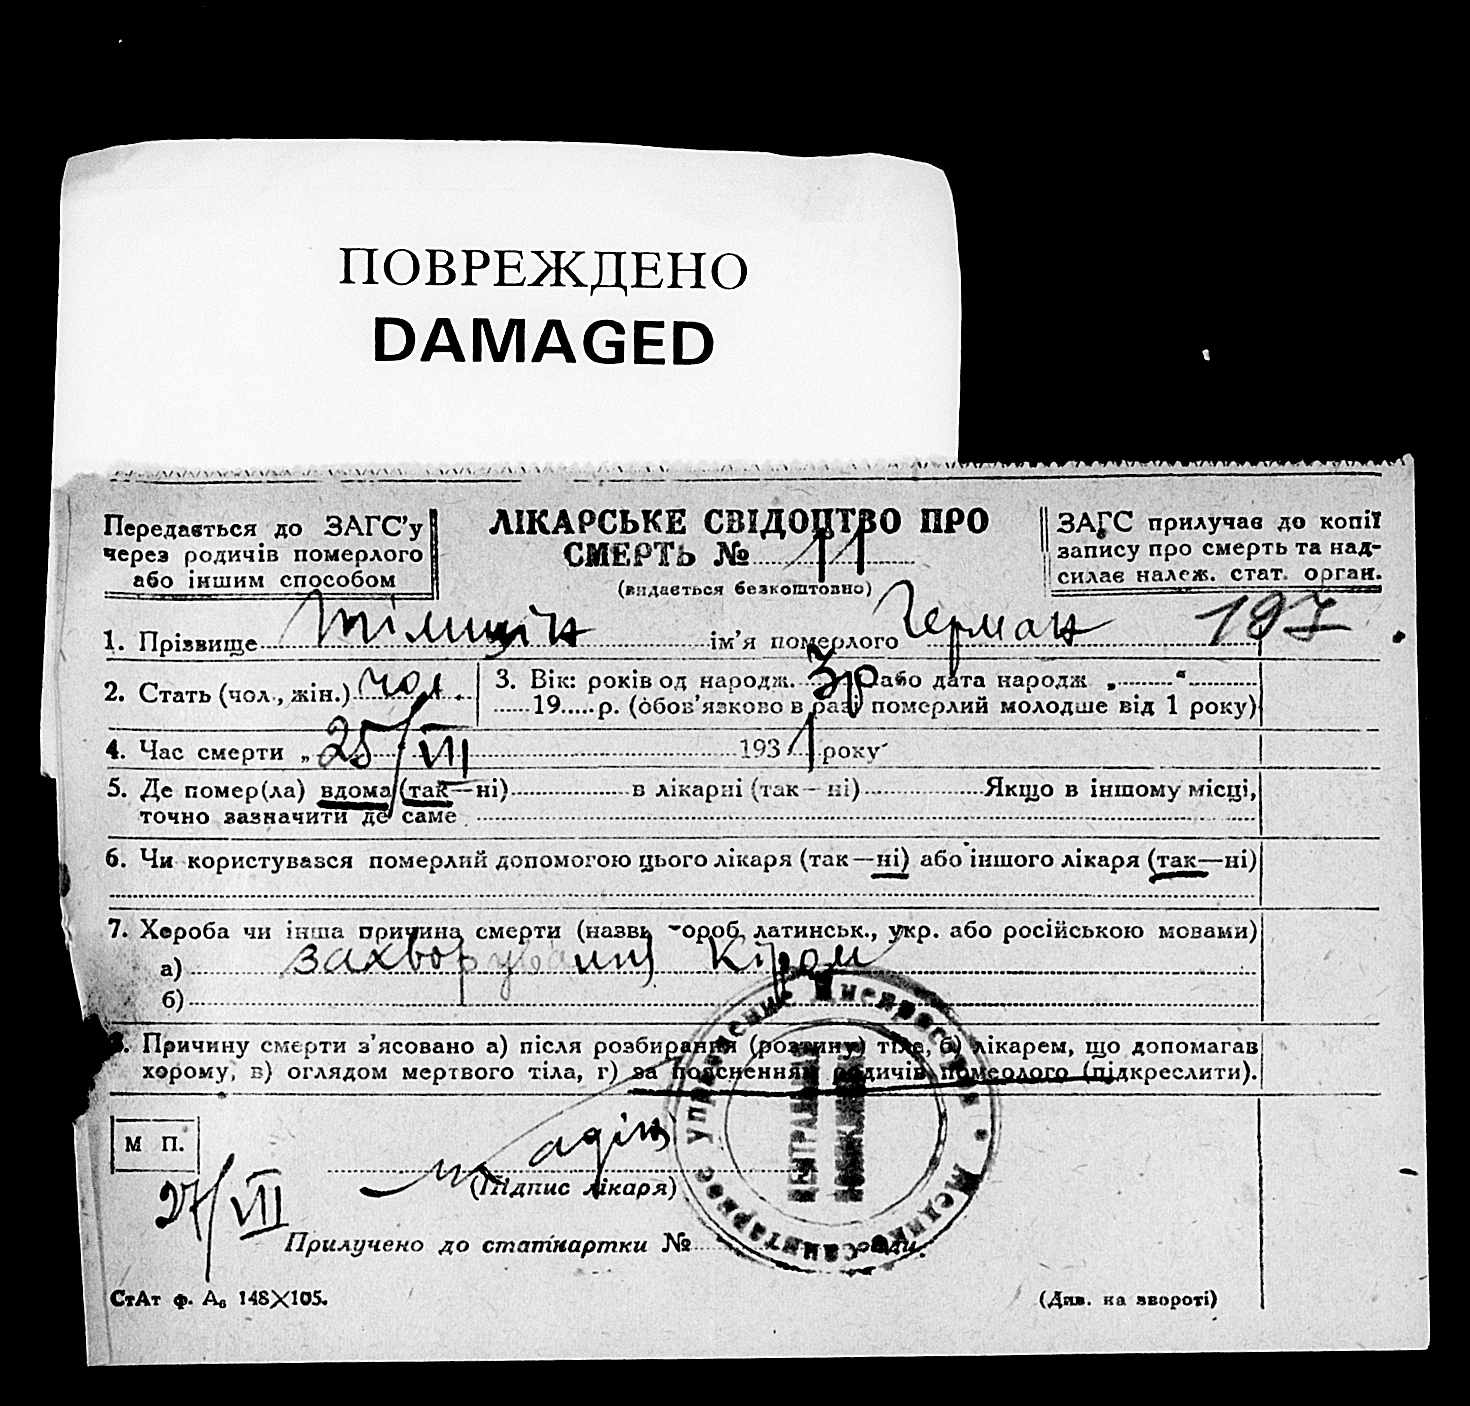 ПОВРЕЖДЕНО
DAMAGED
Передається до ЗАГС'у
через родичів померлого
або іншим способом
ЛІКАРСЬКЕ СВІДОЦТВО ПРО
СМЕРТЬ № 11
(видається безкоштовно)
ЗАГС прилучає до копії
запису про смерть та над-
силає належ. стат. орган.
197
1. Прізвище ім'я померлого Герман
2. Стать (чол., жін.) чол.
3. Вік: років од народж. 3р або дата народж „ “
19 р. (обов'язково в разі померлий молодше від 1 року)
4. Час смерти „ 25/VII 1931 року
5. Де помер(ла) вдома (так—ні) в лікарні (так—ні) Якщо в іншому місці,
точно зазначити де саме
6. Чи користувався померлий допомогою цього лікаря (так—ні) або іншого лікаря (так—ні)
7. Хороба чи інша причина смерти (назви хороб латинськ., укр. або російською мовами)
а) захворування кіром
б)
8. Причину смерти з'ясовано а) після розбирання (розтину) тіла, б) лікарем, що допомагав
хорому, в) оглядом мертвого тіла, г) за поясненням родичів померлого (підкреслити).
М П.
(Підпис лікаря)
27/VII
Прилучено до статкартки №
СтАт ф. А₆ 148×105.
(Див. на звороті)